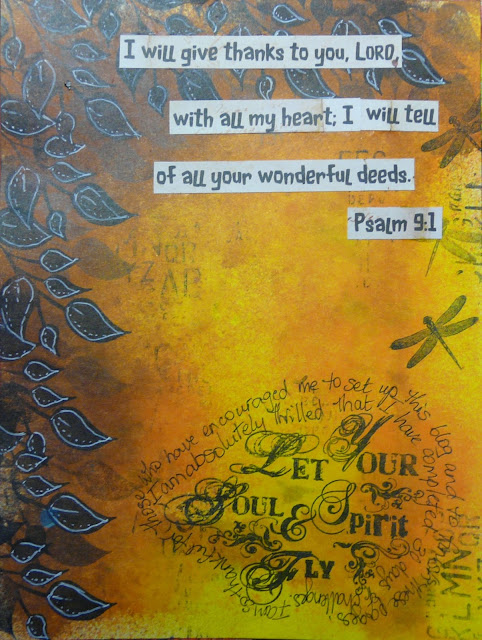 I will give thanks to you, LORD,
with all my heart; I will tell
of all your wonderful deeds.
Psalm 9:1
LET YOUR
SOUL & Spirit
FLY
I am so thankful for those who have encouraged me to set up this blog and
I am absolutely thrilled that I have completed
days of challenges.
L MINOR